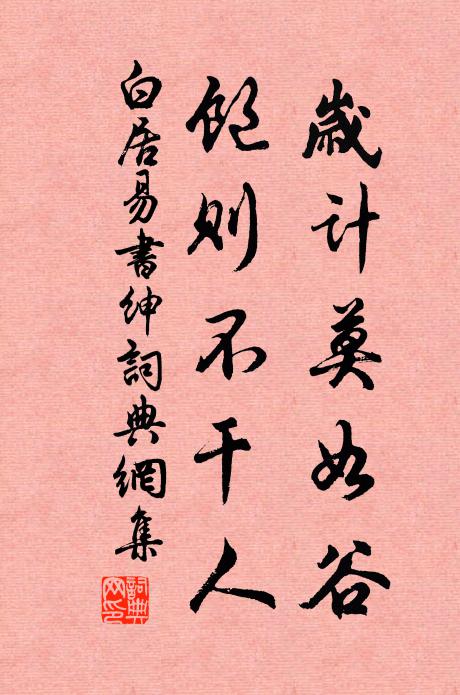 歲計莫如谷
飽則不干人
白居易書紳詞典網集
詞典
网印